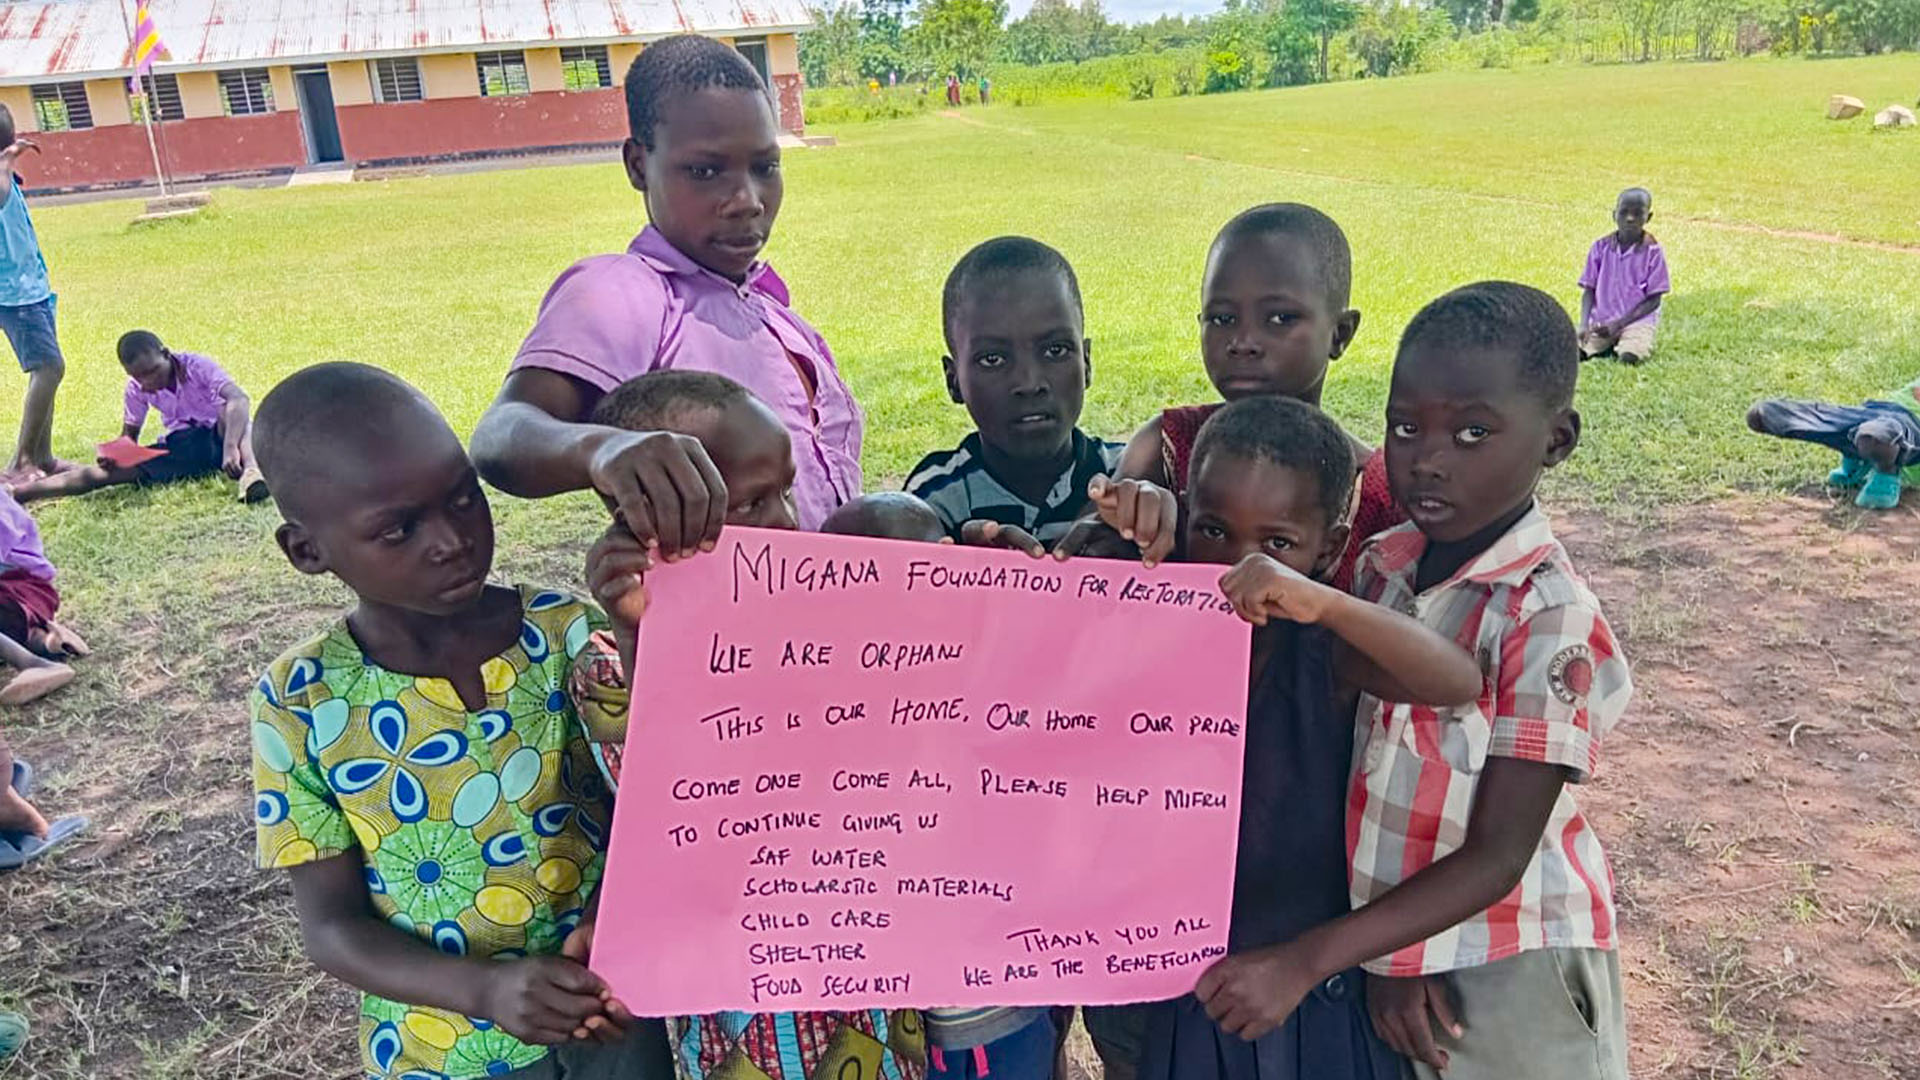 MIGANA FOUNDATION FOR RESTORATION
WE ARE ORPHANS
THIS IS OUR HOME. OUR HOME OUR PRIDE
COME ONE COME ALL, PLEASE HELP MIFRU
TO CONTINUE GIVING US
SAF WATER
SCHOLARSTIC MATERIALS
CHILD CARE
SHELTHER
FOOD SECURITY
THANK YOU ALL
WE ARE THE BENEFICIARIES